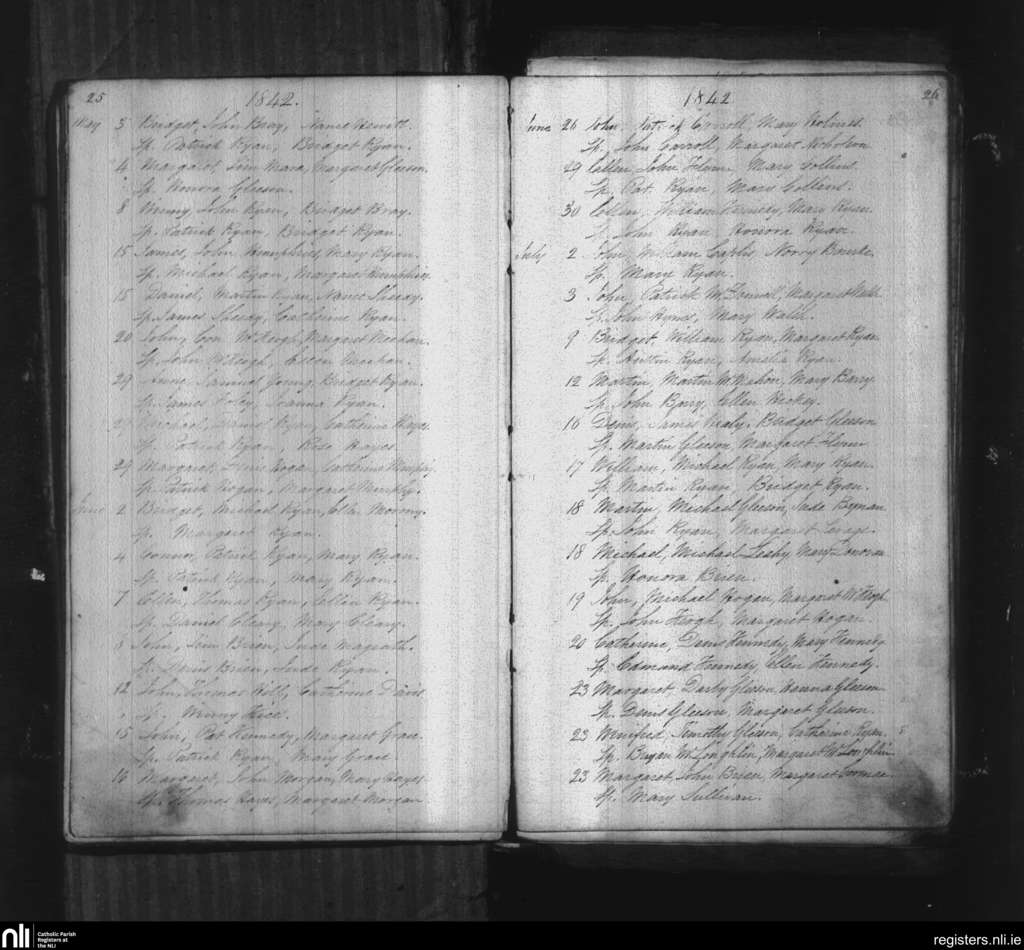 25
1842.
May 5 Bridget, John Bray, Nance Hewitt.
Sp. Patrick Ryan, Bridget Ryan.
4 Margaret, Mara, Margaret Gleeson.
Sp. Honora Gleeson.
8 Winny, John Ryan, Bridget Bray.
Sp. Patrick Ryan, Bridget Ryan.
15 James, John Humphries, Mary Ryan.
Sp. Michael Ryan, Margaret Humphries.
15 Daniel, Martin Ryan, Nance Sheay.
Sp. James Sheay, Catherine Ryan.
20 Johny, Con McKeogh, Margaret Meehan.
Sp. John McKeogh, Ellen Meehan.
29 Anne, Samuel Young, Bridget Ryan.
Sp. James Foley, Joanna Ryan.
Michael, Ryan, Catherine Hayes.
Sp. Patrick Ryan, Hayes
29 Margaret, Denis Hogan, Catherine Murphy.
Sp. Patrick Hogan, Margaret Murphy.
June 2 Bridget, Michael Ryan, Ellen
Sp. Margaret Ryan.
4 Connor, Patrick Ryan, Mary Ryan.
Sp. Patrick Ryan, Mary Ryan.
7 Ellen, Thomas Ryan, Ellen Ryan.
Sp. Daniel Cleary, Mary Cleary.
8 John, Brien, Jude Magrath.
Sp. Denis Brien, Jude Ryan.
12 John, Thomas Hill, Catherine Davis
Sp. Winny Hice.
15 John, Pat Kennedy, Margaret Grace.
Sp. Patrick Ryan, Mary Grace
16 Margaret, John Morgan, Mary Hayes.
Sp. Thomas Hayes, Margaret Morgan
1842
26
June 26 John, of Carroll, Mary Holmes.
Sp. John Carroll, Margaret Nicholson
29 Ellen, John Flynn, Mary Collins.
Sp. Pat Ryan, Mary Collins.
30 Ellen, William Kennedy, Mary Ryan.
Sp. John Ryan, Honora Ryan.
July 2 John, William Caples, Norry Bourke
Sp. Mary Ryan.
3 John, Patrick McDonnell, Margaret Walsh
Sp. John Hynes, Mary Walsh.
9 Bridget, William Ryan, Margaret Ryan
Sp. Austin Ryan, Amelia Ryan.
12 Martin, Martin McMahon, Mary Barry.
Sp. John Barry, Ellen Hickey.
16 Denis, James Healy, Bridget Gleeson
Sp. Martin Gleeson, Margaret Flynn
17 William, Michael Ryan, Mary Ryan.
Sp. Martin Ryan, Bridget Ryan.
18 Martin, Michael Gleeson, Jude Bynan
Sp. John Ryan, Margaret Savage.
18 Michael, Michael Leahy, Mary Donovan
Sp. Honora Brien.
19 John, Michael Hogan, Margaret McKeogh
Sp. John Keogh, Margaret Hogan.
20 Catherine, Denis Kennedy, Mary Kennedy
Sp. Edmand Kennedy, Ellen Kennedy.
23 Margaret, Darby Gleeson, Hanna Gleeson
Sp. Denis Gleeson, Margaret Gleeson.
23 Winifred, Timothy Gleeson, Catherine Ryan.
Sp. Bryan McLoughlin, Margaret McLoughlin
23 Margaret, John Brien, Margaret Cormac
Sp. Mary Sullivan.
nli
Catholic Parish
Registers at
the NLI
registers.nli.ie